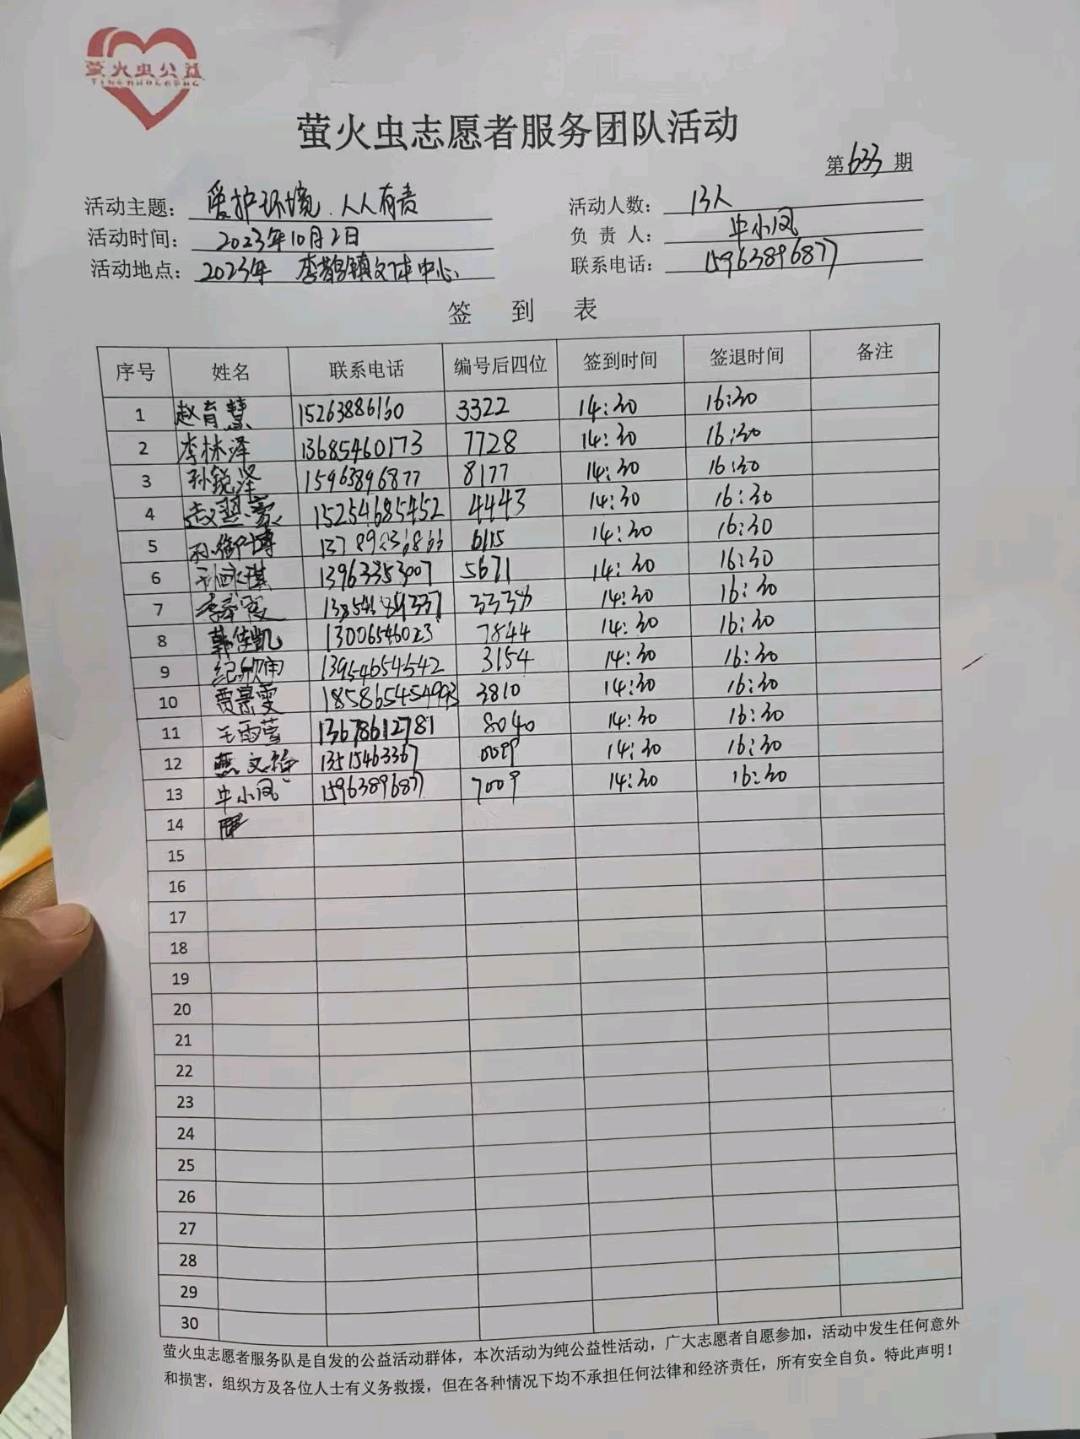 萤火虫公益
萤火虫志愿者服务团队活动
第633期
活动主题：爱护环境.人人有责 活动人数：13人
活动时间：2023年10月2日 负责人：牛小凤
活动地点：2023年 李鹊镇文体中心 联系电话：15963896877
签到表
序号 姓名 联系电话 编号后四位 签到时间 签退时间 备注
1 赵育慧 15263886160 3322 14:30 16:30
2 李林泽 13685460173 7728 14:30 16:30
3 孙锐泽 15963896877 8177 14:30 16:30
4 15254685452 4443 14:30 16:30
5 6115 14:30 16:30
6 13963353007 5671 14:30 16:30
7 14:30 16:30
8 韩佳凯 13006546023 7844 14:30 16:30
9 纪欣雨 13954654542 3154 14:30 16:30
10 贾慕雯 3810 14:30 16:30
11 王雨萱 13678612781 8040 14:30 16:30
12 燕文 13515463367 0099 14:30 16:30
13 牛小凤 15963896877 7009 14:30 16:30
14
15
16
17
18
19
20
21
22
23
24
25
26
27
28
29
30
萤火虫志愿者服务队是自发的公益活动群体，本次活动为纯公益性活动，广大志愿者自愿参加，活动中发生任何意外
和损害，组织方及各位人士有义务救援，但在各种情况下均不承担任何法律和经济责任，所有安全自负。特此声明！